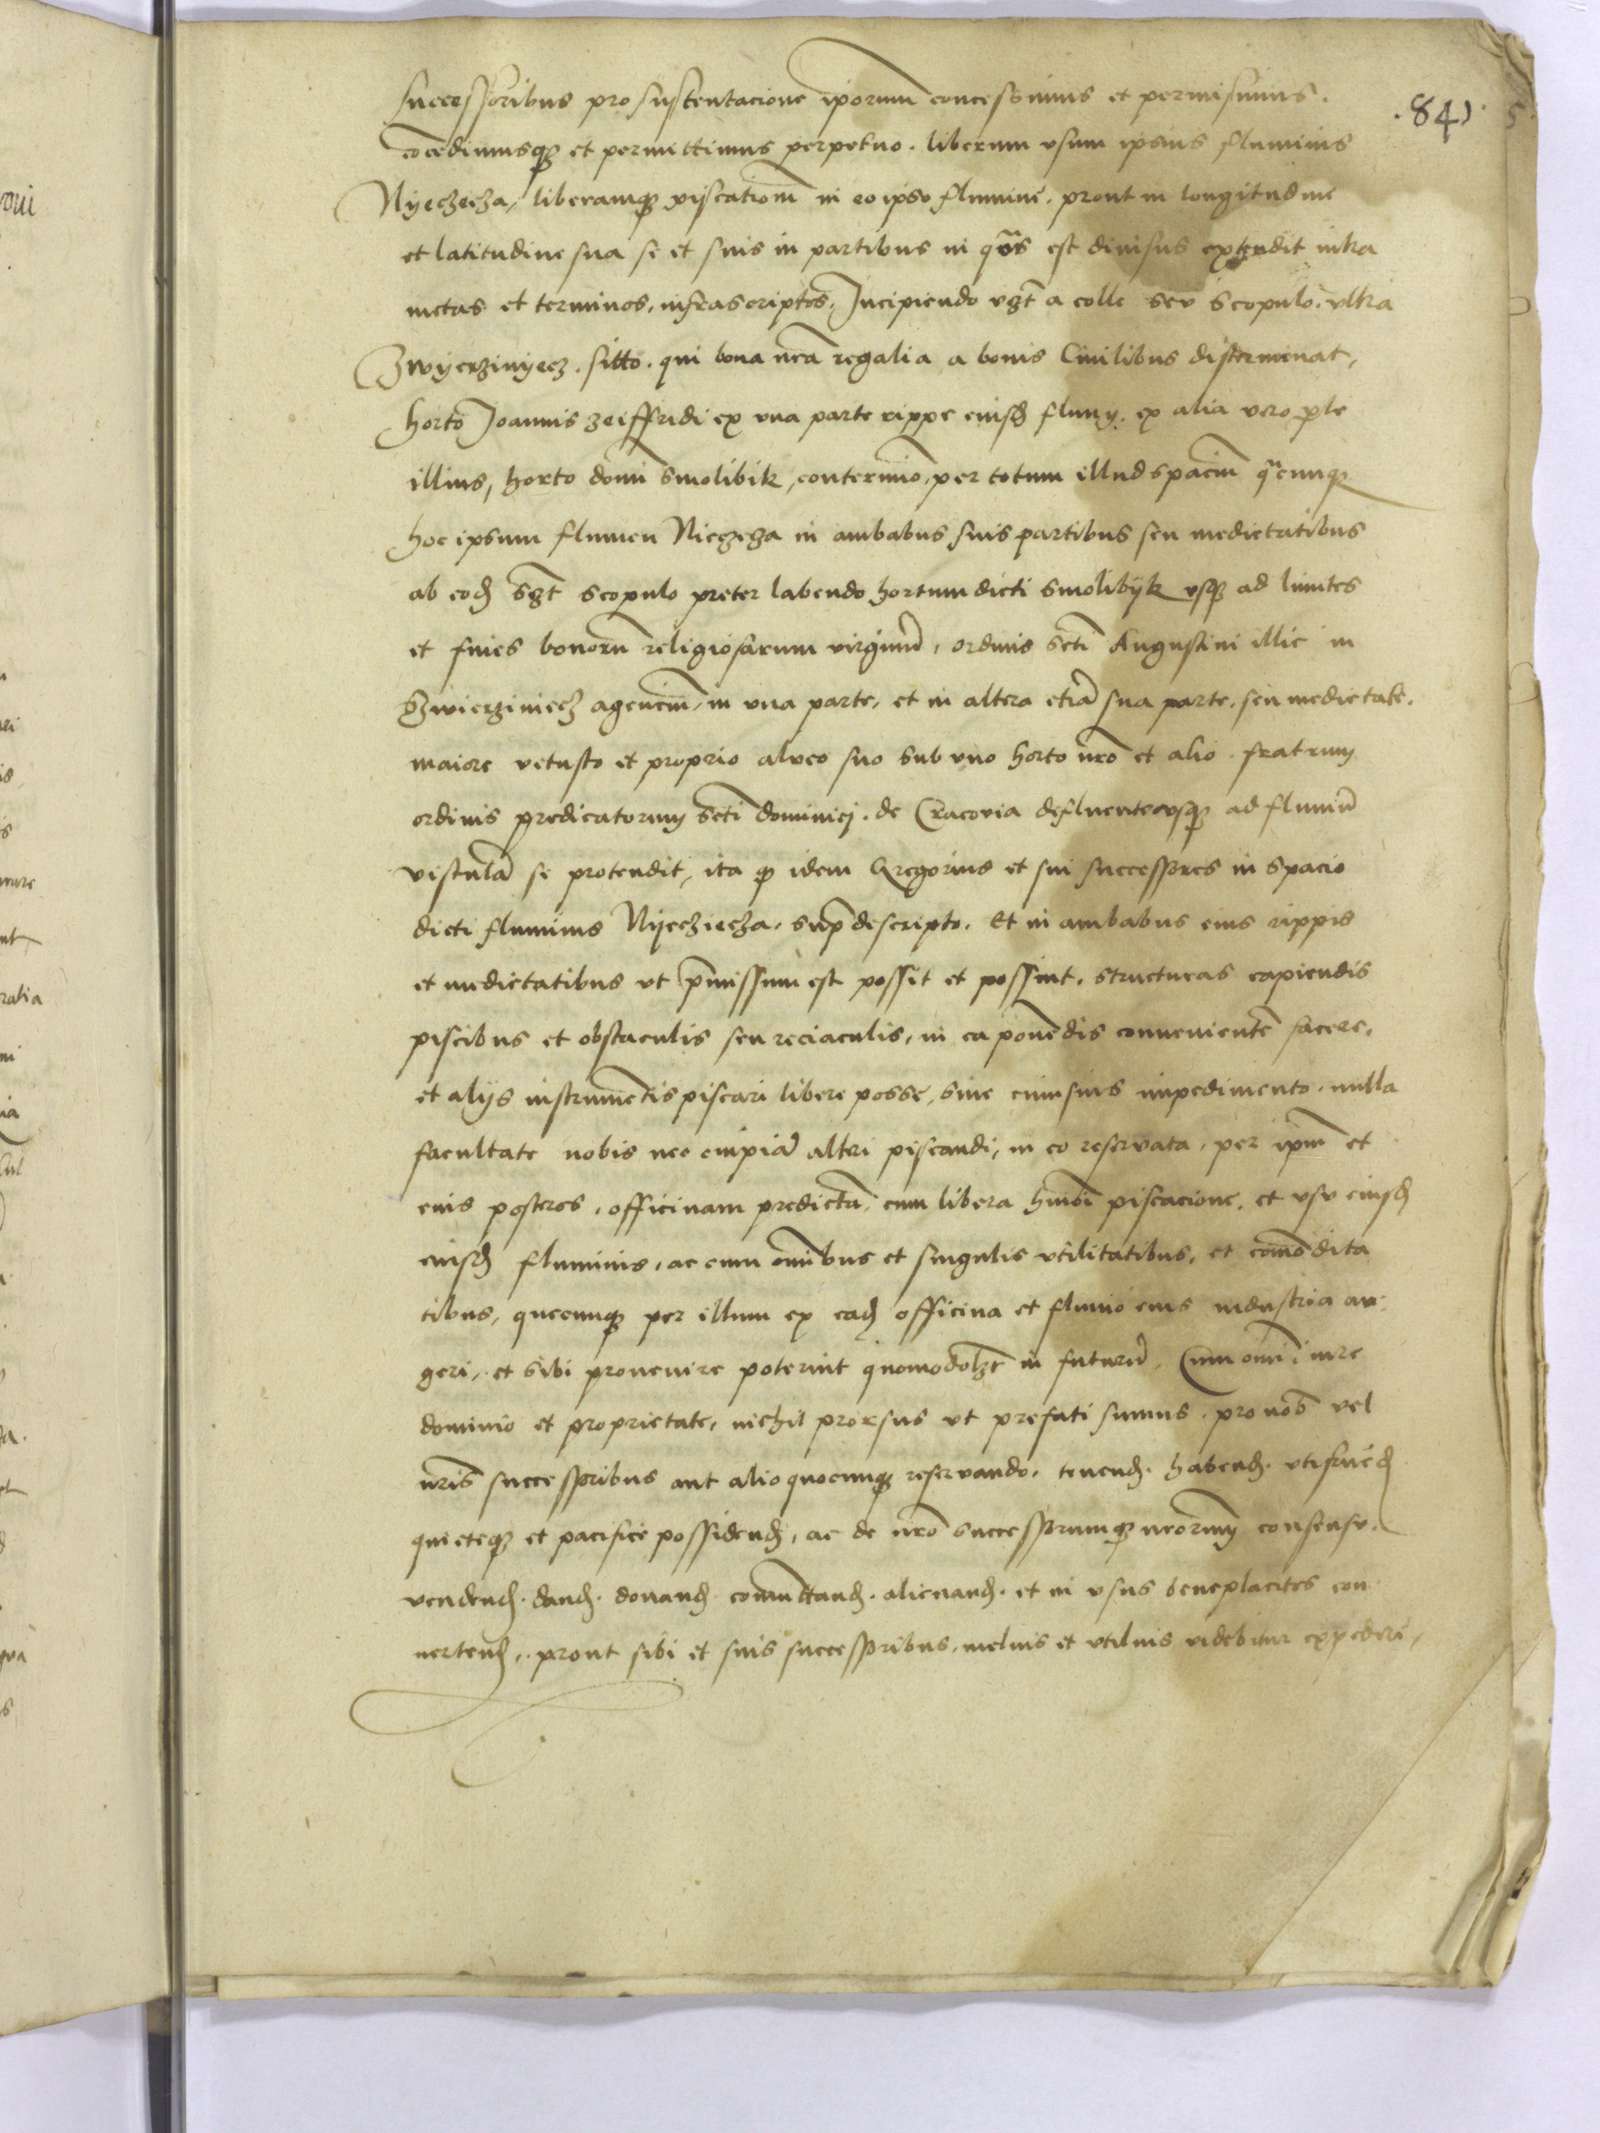 .84)
successoribus pro sustentacione ip̄orum concessimus et permisimus.
cōcedimusq̃ et permittimus perpetuo. liberum vsum ipsius fluminis
Nyeczecza, liberamq̃ piscationē in eo ipso flumine. prout in longitudine
et latitudine sua se et suis in partibus in quas est divisus extendit infra
metas et terminos. infrascriptos. Incipiendo vz̄t a colle seu scopulo. vltra
Zwyerzinyecz. sitto. qui bona nr̄a regalia a bonis Civilibus disterminat,
horto Joannis zeiffridi ex vna parte rippe eiusd̄ fluuy. ex alia vero p̄te
illius, horto domi Smolibik, contermīo, per totum illud spaciū qcunq̃
hoc ipsum flumen Nieczecza in ambabus suis partibus seu medietatibus
ab eod̄ sz̄t scopulo preter labendo hortum dicti Smolibyk vsq̃ ad limites
et fines bonorū religiosarum virginū, ordinis scti Augustini illic in
Zwierziniecz ageneiū, in vna parte, et in altera etiā sua parte. seu medietate.
maiore vetusto et proprio alveo suo sub vno horto nr̄o et alio fratrum
ordinis predicatorum scti dominicj. de Cracovia defluente vsq̃ ad fluuiū
vistulā se protendit, ita q̃ idem Gregorius et sui successores in spacio
dicti fluminis Nyecziecza. sup̄descripto. Et in ambabus eius rippis
et medietatibus vt p̄missum est possit et possint. structuras capiendis
piscibus et obstaculis seu reciaculis, in ea ponēdis convenientē facere,
et alijs instrumētis piscari libere posse, sine cuiusuis impedimento. nulla
facultate nobis nec cuipiā alteri piscandi, in eo reservata, per ip̄m et
eius posteros, officinam predictā, cum libera hm̄oi piscacione. et vsu eiusd̄
eiusd̄ fluminis, ac cum om̄ibus et singulis vtilitatibus, et comōdita
tibus, quecunq̃ per illum ex ead̄ officina et fluuio eius industria au
geri, et sibi provenire poterint quomodolz̄t in futurū, Cum om̄i iure
dominio et proprietate, nichil prorsus vt prefati sumus. pro nob̄ vel
nr̄is successoribus aut alio quocunq̃ reservando. tenend̄. habend̄. vtifruēd̄
quieteq̃ et pacifice possidend̄, ac de nr̄o successorumq̃ nr̄orum consensu.
vendend̄. dand̄. donand̄. comūttand̄. alienand̄. et in vsus beneplacitos con
vertend̄, prout sibi et suis successoribus. melius et vtilius videbitur expedire,